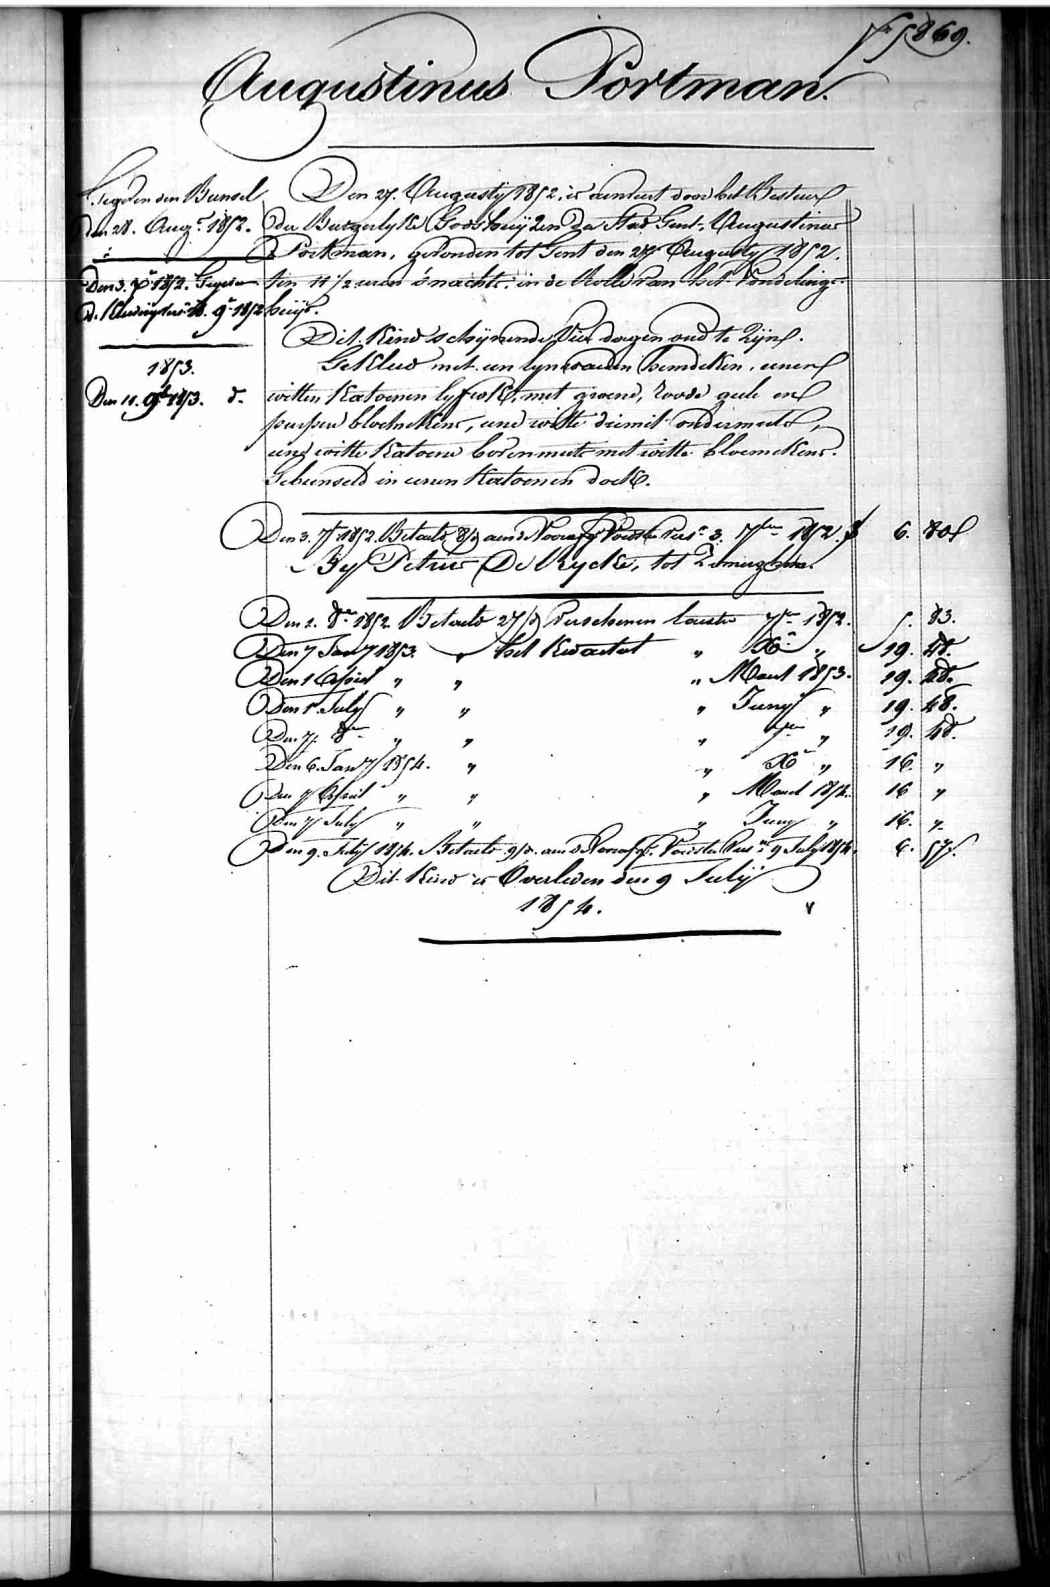 869.
Augustinus Portman.
Gegeven den Bunsel
den 28. Aug. 1852.
Den 3. 7r 1852. Gegeven
9r 1852
1853.
Den 11. 9r 1853. d.
Den 27. Augusty 1852, is aenveert door het Bestuer
der Burgerlyke Godshuyzen der Stad Gent, Augustinus
Portman, gevonden tot Gent den 27 Augusty 1852.
ten 11 1/2 uren s'nachts, in de Rolle van het Vondelinge-
huys.
Dit Kind schynende Vier dagen oud te zyn.
Gekleed met een lynwaeden hemdeken, eenen
witten Katoenen lyfrok, met groene, roode geele en
purpere bloemekens, eene witte diemit ondermuts,
eene witte Katoene bovenmuts met witte bloemekens.
Gebunseld in eenen Katoenen doek.
Den 3. 7r 1852. Betaeld 8/d aen d'Voorafg. Voedster 3. 7ber 1852. f 6. 80
By Petrus De Rycke, tot Zomerghem.
Den 2. 8r 1852. Betaeld 27/d Verschenen laesten 7r 1852. 5. 83.
Den 7 Jany 1853. " het Kwartael " Xr " 19. 48.
Den 1 April " " " Maert 1853. 19. 48.
Den 1 July " " " Juny " 19. 48.
Den 7. 8r " " " 7r " 19. 48.
Den 6. Jany 1854. " " Xr " 16. "
Den 7 April " " " Maert 1854. 16 "
Den 7 July " " " Juny " 16. "
Den 9. July 1854. Betaeld 9/d. aen d'Voorafg. Voedster 9 July 1854. 6. 57.
Dit Kind is Overleden den 9 July
1854.